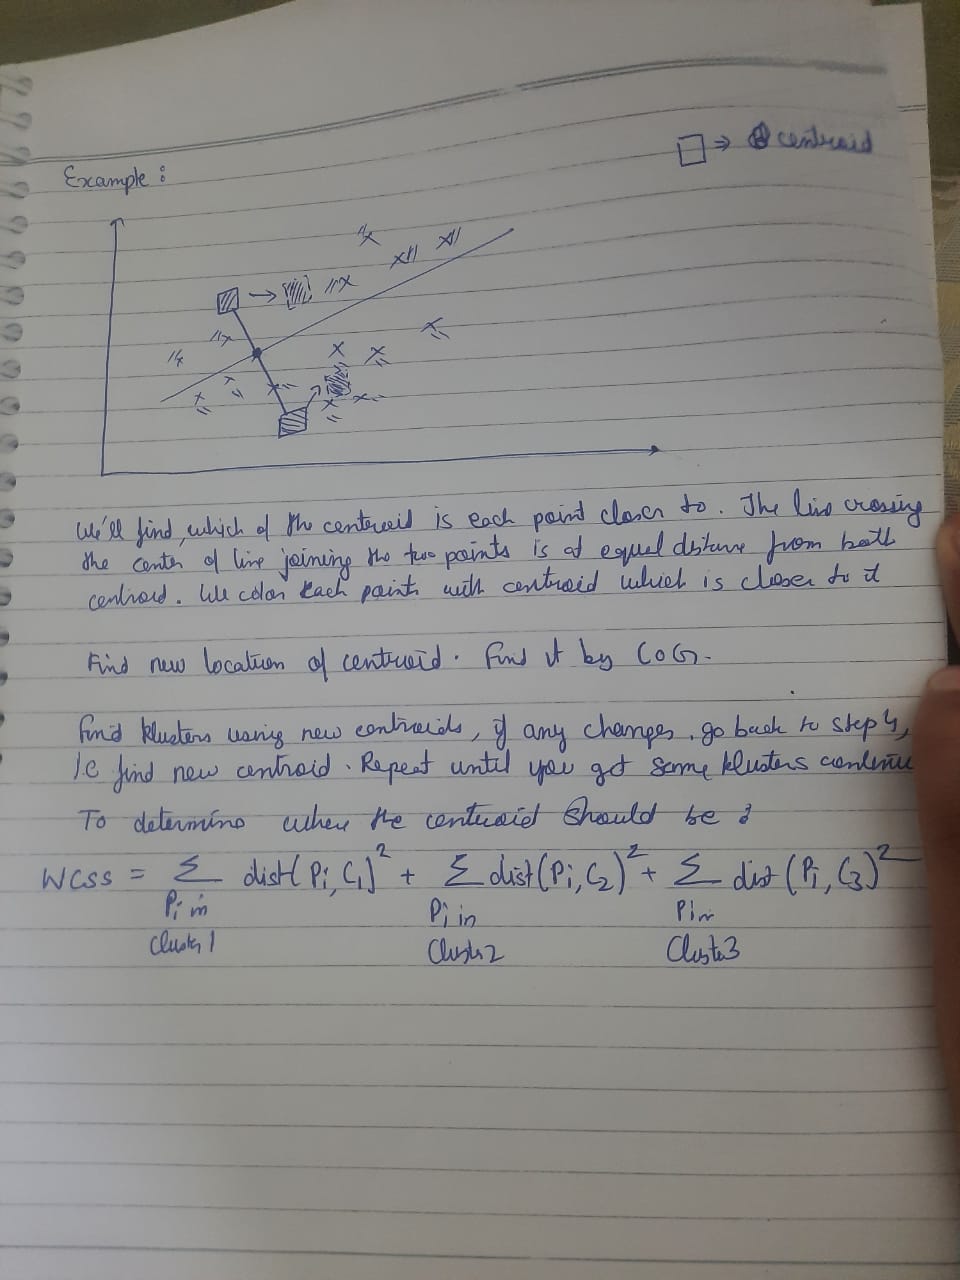 □ ⇒ centroid
Example :
We'll find, which of the centroid is each point closer to. The line crossing
the center of line joining the two points is at equal distance from both
centroid. We color each points with centroid which is closer to it
Find new location of centroid. Find it by COG.
Find klusters using new centroids, if any changes, go back to step 4,
i.e find new centroid. Repeat until you get same klusters continue
To determine where the centroid should be ?
WCSS = Σ dist(Pi, C1)² + Σ dist(Pi, C2)² + Σ dist(Pi, C3)²
Pi in Pi in Pi in
Cluster 1 Cluster 2 Cluster 3